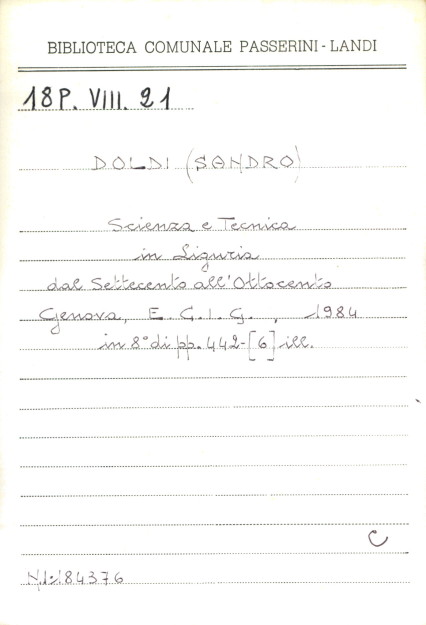 BIBLIOTECA COMUNALE PASSERINI - LANDI
18P. VIII. 21
DOLDI (SANDRO)
Scienza e Tecnica
in Liguria
dal Settecento all'Ottocento
Genova, E. C. I. G. , 1984
in 8° di pp. 442-[6] ill.
C
N.I.: 184376